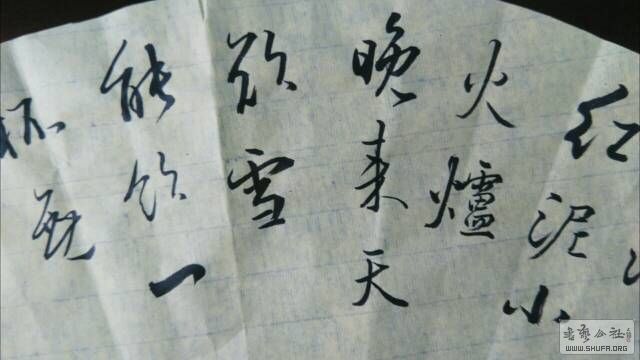 红泥小
火爐
晚来天
欲雪
能饮一
杯无
書藝公社
WWW.SHUFA.ORG